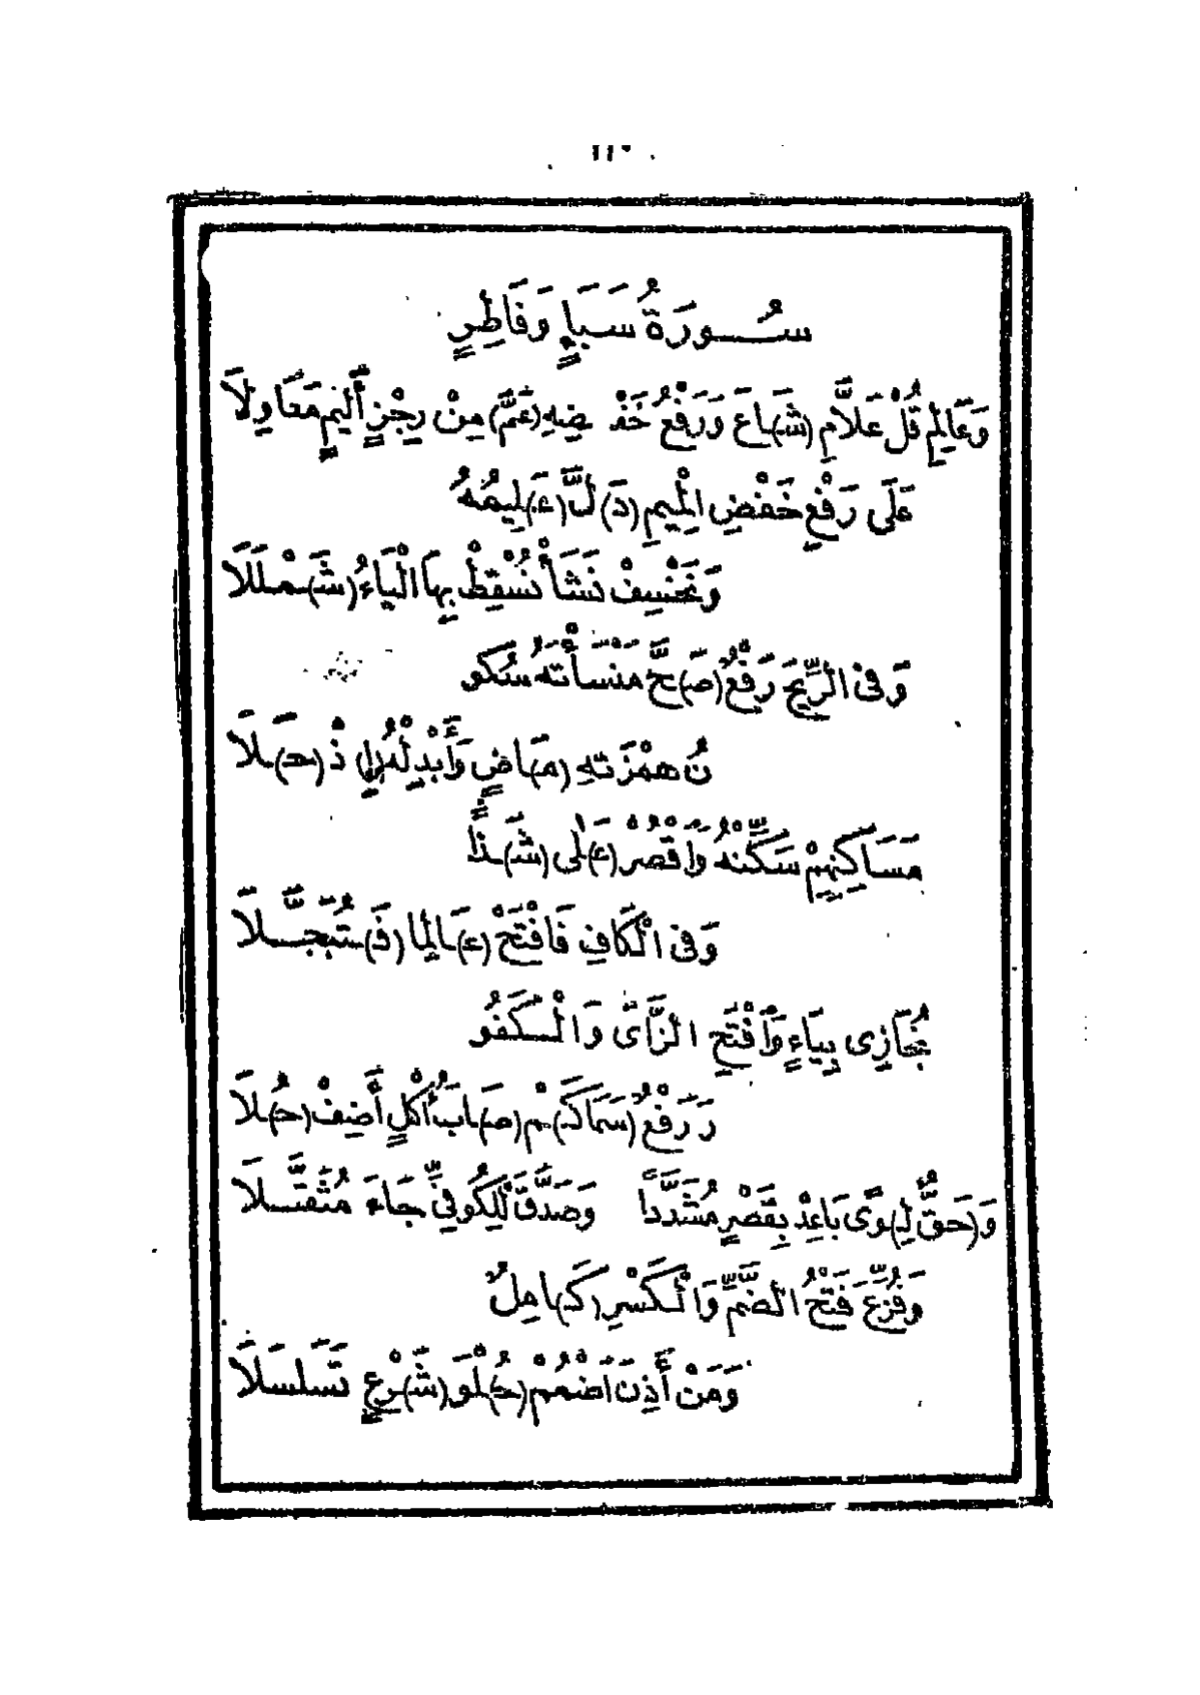 سُورَةُ سَبَإٍ وَفَاطِرٍ
وَعَالِمِ قُلْ عَلَّامِ (شَـ)ـاعَ وَرَفْعُ خَفْـ ـضِهِ (عَمَّ) مِنْ رِجْزٍ أَلِيمٍ مَعًا وِلَا
عَلَى رَفْعِ خَفْضِ الْمِيمِ (دَ)لَّ (عَـ)ـلِيمُهُ
وَنَخْسِفْ نَشَأْ نُسْقِطْ بِهَا الْيَاءُ (شَـ)ـمْلَلَا
وَفِي الرِّيحَ رَفْعٌ (صَـ)ـحَّ مَنْسَأْتَهُ سُكُو
نُ هَمْزَتِهِ (مَـ)ـاضٍ وَأَبْدِلْهُ إِ ذْ (حَـ)ـلَا
مَسَاكِنِهِمْ سَكِّنْهُ وَاقْصُرْ (عَـ)ـلَى (شَـ)ـذًا
وَفِي الْكَافِ فَافْتَحْ (عَـ)ـالِمًا (فَـ)ـتُبَجَّلَا
نُجَازِي بِيَاءٍ وَافْتَحِ الزَّايَ وَالْكَفُو
رَ رَفْعٌ (سَمَا كَـ)ـمْ (صَـ)ـابَ أُكْلٍ أَضِفْ (حُـ)ـلَا
وَ(حَقُّ لِـ)ـوًى بَاعِدْ بِقَصْرٍ مُشَدَّدًا وَصَدَّقَ لِلْكُوفِيِّ جَاءَ مُثَقَّلَا
وَفُزِّعَ فَتْحُ الضَّمِّ وَالْكَسْرِ (كَـ)ـامِلٌ
وَمَنْ أَذِنَ اضْمُمْ (حُـ)ـلْوَ (شَـ)ـرْعٍ تَسَلْسَلَا